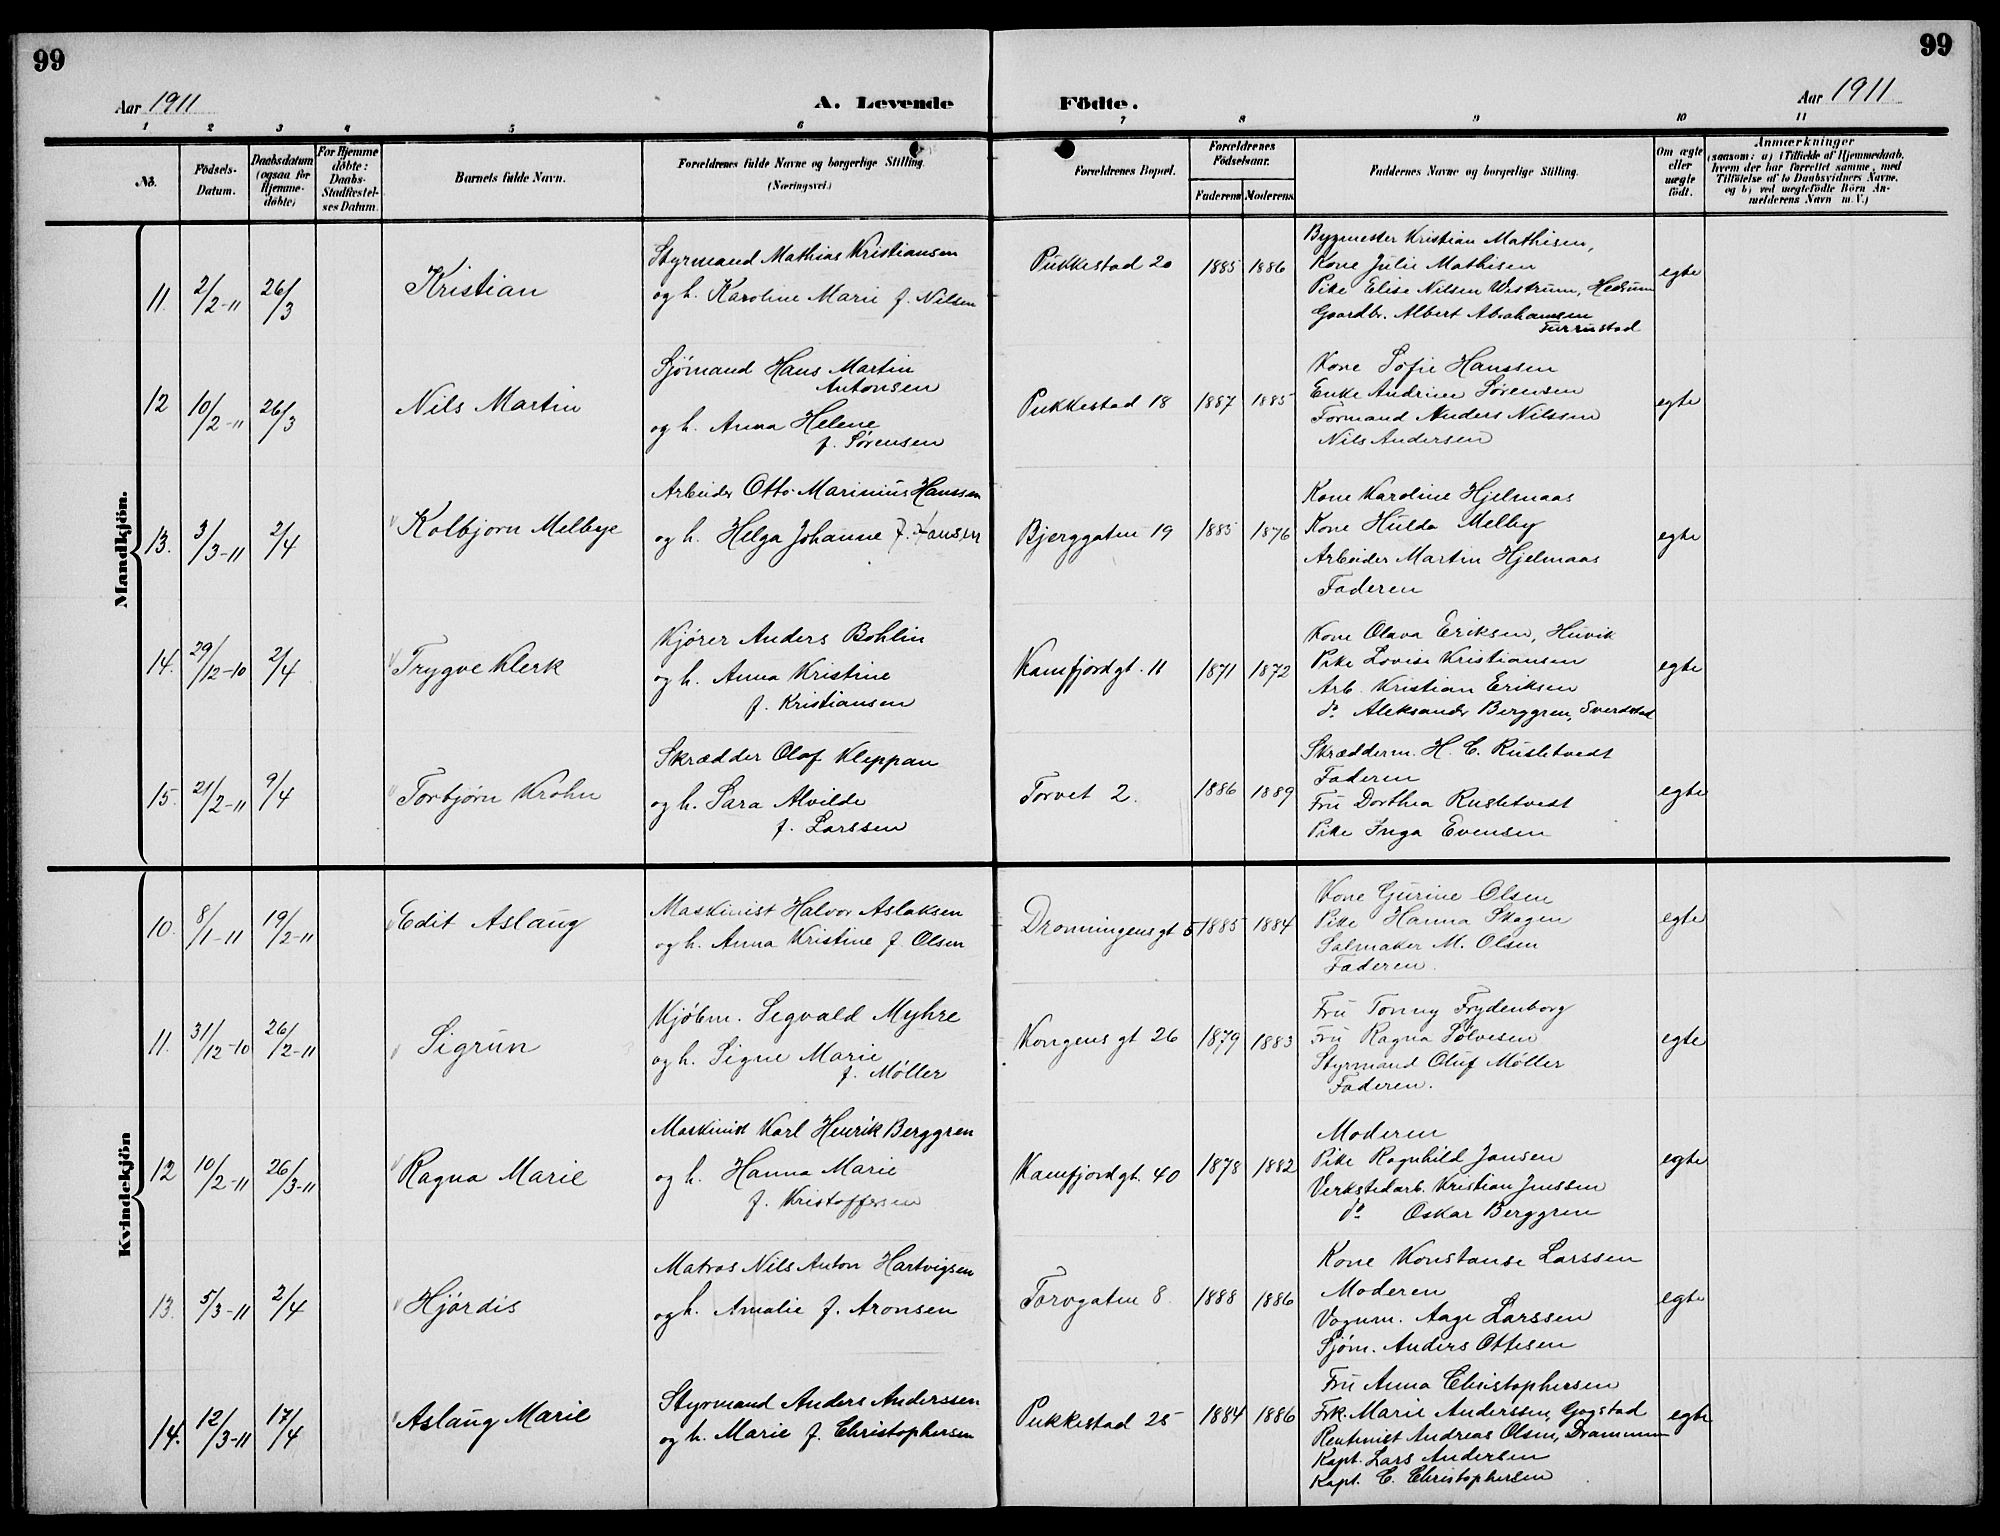 99
99
Aar 1911
A. Levende Födte.
Aar 1911
1 2 3 4 5 6 7 8 9 10 11
No.
Födsels-Datum.
Daabsdatum (ogsaa for Hjemme-döbte)
For Hjemme döbte: Daabs-Stadfæstel-ses Datum.
Barnets fulde Navn.
Forældrenes fulde Navne og borgerlige Stilling.
(Næringsvei.)
Forældrenes Bopæl.
Forældrenes Födselsaar.
Faderens Moderens.
Faddernes Navne og borgerlige Stilling.
Om ægte eller uægte födt.
Anmærkninger
(saasom: a) i Tilfælde af Hjemmedaab,
hvem der har forrettet samme, med
Tilföielse af to Daabsvidners Navne.
og b) ved uægtefödte Börn An-
melderens Navn m. V.)
Mandkjön.
11. 2/2-11 26/3 Kristian
Styrmand Mathias Kristiansen
og h. Karoline Marie f. Nilsen
Pukkestad 20 1885 1886
Bygmester Kristian Mathisen,
Kone Julie Mathisen
Pike Elise Nilsen Wistrum, Hedrum
Gaardbr. Albert Abrahamsen
Furustad
egte
12 10/2-11 26/3 Nils Martin
Sjømand Hans Martin
Antonsen
og h. Anna Helene
f. Sørensen
Pukkestad 18 1887 1885
Kone Sofie Hanssen
Enke Andrine Sørensen
Formand Anders Nilssen
Nils Andersen
egte
13. 3/3-11 2/4 Kolbjørn Melbye
Arbeider Otto Marinius Hanssen
og h. Helga Johanne f. Hansen
Bjerggaten 19 1885 1876
Kone Karoline Hjelmaas
Kone Hulda Melby
Arbeider Martin Hjelmaas
Faderen
egte
14. 29/12-10 2/4 Trygve Klerk
Kjører Anders Bohlin
og h. Anna Kristine
f. Kristiansen
Kamfjordgt. 11 1871 1872
Kone Olava Eriksen, Huvik
Pike Lovise Kristiansen
Arb. Kristian Eriksen
do. Aleksander Berggren, Sverdstad
egte
15. 21/2-11 9/4 Torbjørn Krohn
Skrædder Olaf Kleppan
og h. Sara Alvilde
f. Larssen
Torvet 2. 1886 1889
Skrædderm. H. C. Rustetvedt
Faderen
Fru Dorthea Rustetvedt
Pike Inga Evensen
egte
Kvindekjön
10. 8/1-11 19/2-11 Edit Aslaug
Maskinist Halvor Aslaksen
og h. Anna Kristine f. Olsen
Dronningensgt 5 1885 1884
Kone Gurine Olsen
Pike Hanna Skagen
Salmaker M. Olsen
Faderen.
egte
11. 31/12-10 26/2-11 Sigrun
Kjøbm. Sigvald Myhre
og h. Signe Marie
f. Møller
Kongens gt 26 1879 1883
Fru Tonny Frydenborg
Fru Ragna Sølvesen
Styrmand Oluf Møller
Faderen.
egte
12 10/2-11 26/3-11 Ragna Marie
Maskinist Karl Henrik Berggren
og h. Hanna Marie
f. Kristoffersen
Kamfjordgt. 40 1878 1882
Moderen
Pike Ragnhild Jansen
Verkstedarb. Kristian Jenssen
do. Oskar Berggren
egte
13. 5/3-11 2/4 Hjørdis
Matros Nils Anton Hartvigsen
og h. Amalie f. Aronsen
Torvgaten 8. 1888 1886
Kone Konstanse Larssen
Moderen
Vognm. Aage Larssen
Sjøm. Anders Ottesen
egte
14. 12/3-11 17/4 Aslaug Marie
Styrmand Anders Anderssen
og h. Marie f. Christophersen
Pukkestad 25 1884 1886
Fru Anna Christophersen
Frk. Marie Anderssen, Gogstad
Rentenist Andreas Olsen, Drammen
Kapt. Lars Andersen
Kapt. C. Christophersen
egte